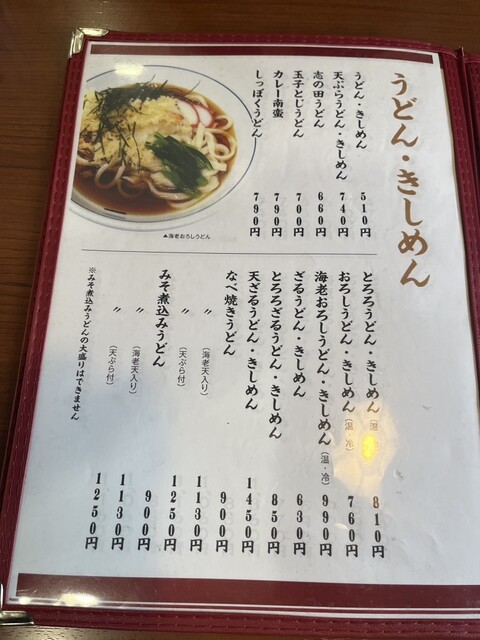 うどん・きしめん
うどん・きしめん 510円
天ぷらうどん・きしめん 740円
志の田うどん 660円
玉子とじうどん 700円
カレー南蛮 790円
しっぽくうどん 790円
▲海老おろしうどん
とろろうどん・きしめん（温・冷） 810円
おろしうどん・きしめん（温・冷） 760円
海老おろしうどん・きしめん（温・冷） 990円
ざるうどん・きしめん 630円
とろろざるうどん・きしめん 850円
天ざるうどん・きしめん 1450円
なべ焼きうどん 900円
〃（海老天入り） 1130円
〃（天ぷら付） 1250円
みそ煮込みうどん 900円
〃（海老天入り） 1130円
〃（天ぷら付） 1250円
※みそ煮込みうどんの大盛りはできません